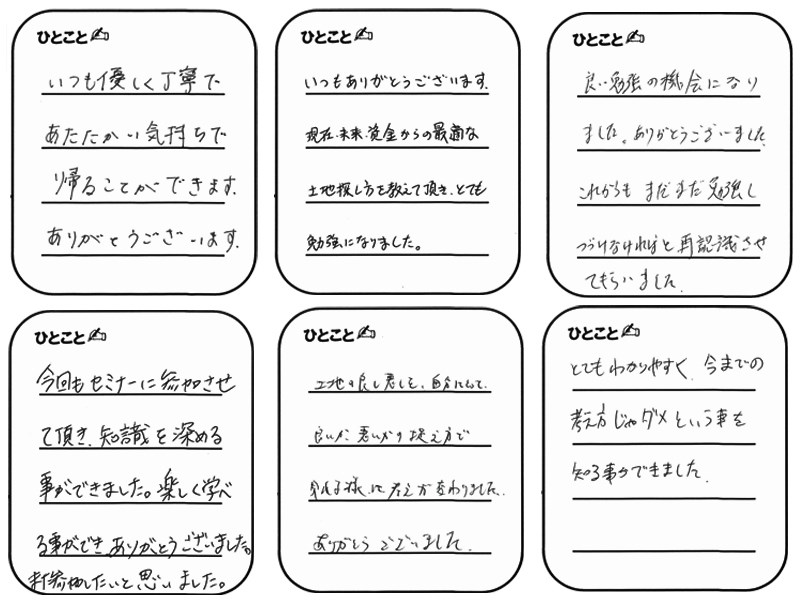 ひとこと
いつも優しく丁寧で
あたたかい気持ちで
帰ることができます.
ありがとうございます.
ひとこと
いつもありがとうございます.
現在.未来.資金からの最適な
土地探し方を教えて頂き.とても
勉強になりました。
ひとこと
良い勉強の機会になり
ました。ありがとうございました
これからも まだまだ勉強し
つづけなければと再認識させ
てもらいました.
ひとこと
今回もセミナーに参加させ
て頂き.知識を深める
事ができました。楽しく学べ
る事ができ ありがとうございました。
また参加したいと思いました。
ひとこと
土地の良し悪しも、自分にとって.
良いか 悪いかの捉え方で
考え方 変わりました.
ありがとう ございました.
ひとこと
とてもわかりやすく、今までの
考え方じゃダメという事を
知る事ができました.